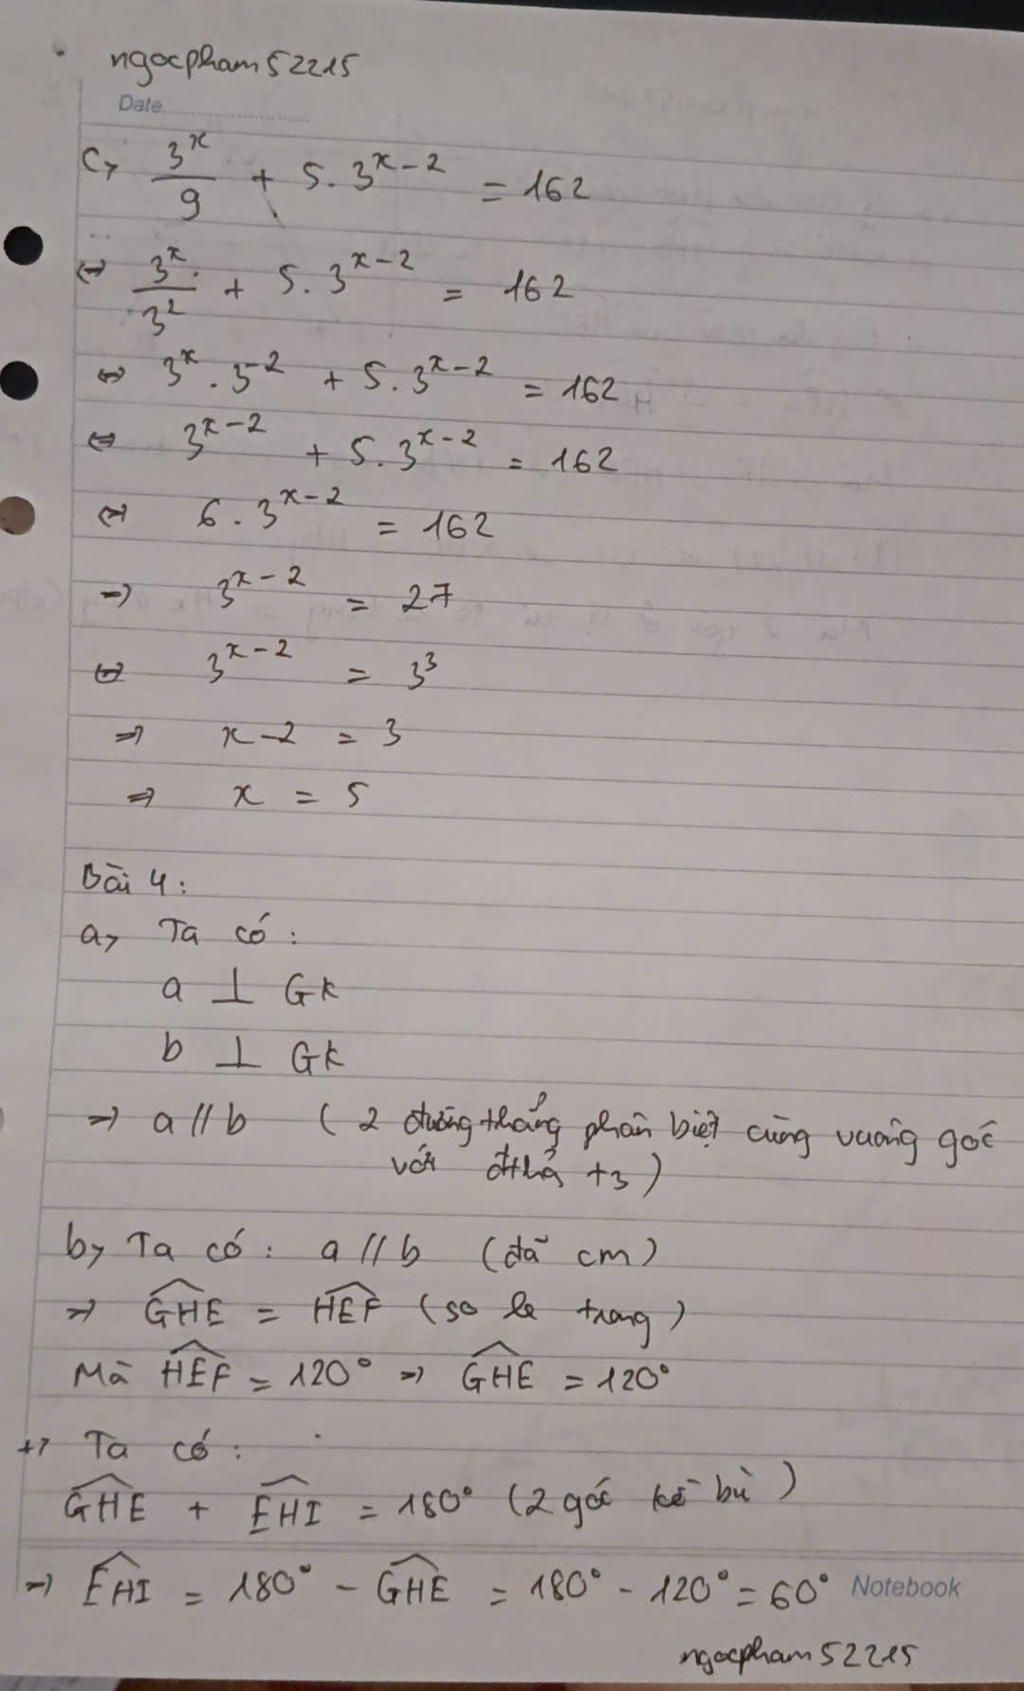 ngocpham52215
Date
c, 3^x/9 + 5.3^{x-2} = 162
⇔ 3^x/3^2 + 5.3^{x-2} = 162
⇔ 3^x . 3^{-2} + 5.3^{x-2} = 162
⇔ 3^{x-2} + 5.3^{x-2} = 162
⇔ 6.3^{x-2} = 162
⇒ 3^{x-2} = 27
⇔ 3^{x-2} = 3^3
⇒ x-2 = 3
⇒ x = 5
Bài 4:
a, Ta có:
a ⊥ GK
b ⊥ GK
⇒ a // b (2 đường thẳng phân biệt cùng vuông góc
với đthẳ t3)
b, Ta có: a // b (đã cm)
⇒ \widehat{GHE} = \widehat{HEF} (so le trong)
Mà \widehat{HEF} = 120° ⇒ \widehat{GHE} = 120°
+, Ta có:
\widehat{GHE} + \widehat{EHI} = 180° (2 góc kề bù)
⇒ \widehat{EHI} = 180° - \widehat{GHE} = 180° - 120° = 60° Notebook
ngocpham52215